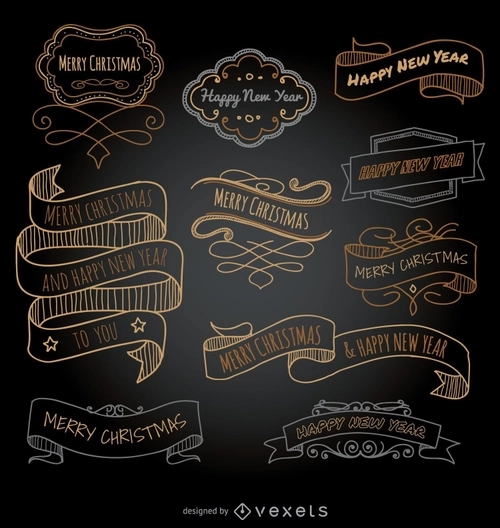 MERRY CHRISTMAS
Happy New Year
HAPPY NEW YEAR
HAPPY NEW YEAR
MERRY CHRISTMAS
AND HAPPY NEW YEAR
TO YOU
MERRY CHRISTMAS
MERRY CHRISTMAS
MERRY CHRISTMAS & HAPPY NEW YEAR
MERRY CHRISTMAS
HAPPY NEW YEAR
designed by vexels